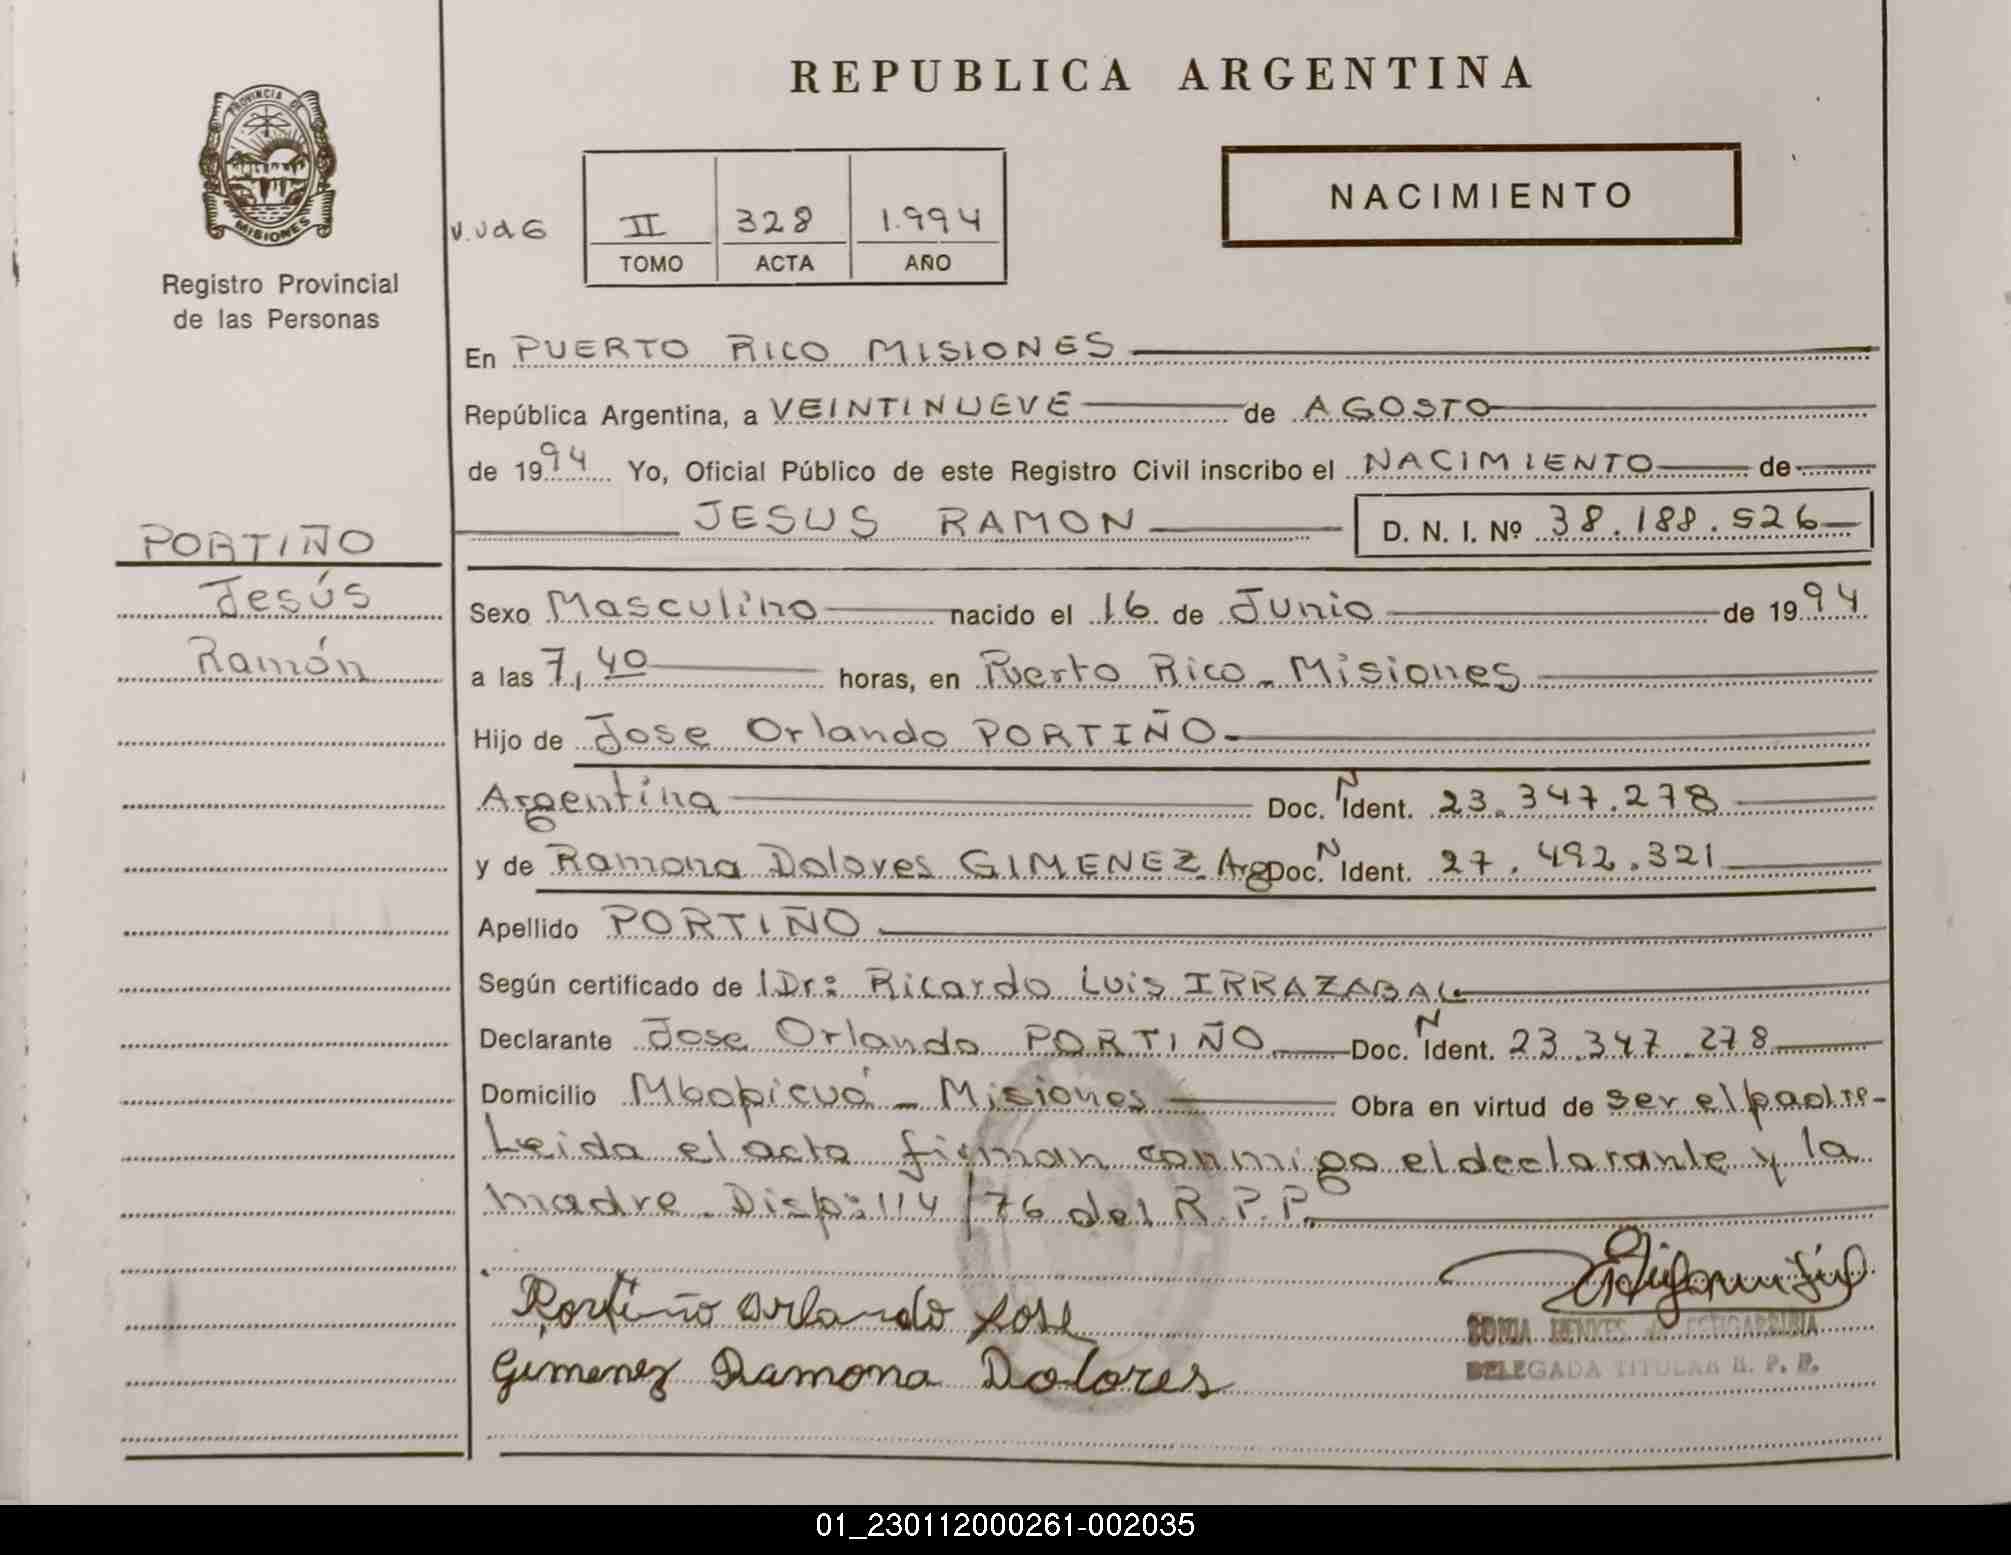 REPUBLICA ARGENTINA
PROVINCIA DE
MISIONES
Registro Provincial
de las Personas
NACIMIENTO
II 328 1.994
TOMO ACTA AÑO
En PUERTO RICO MISIONES
República Argentina, a VEINTINUEVE de AGOSTO
de 1994 Yo, Oficial Público de este Registro Civil inscribo el NACIMIENTO de
JESUS RAMON D. N. I. Nº 38.188.526
PORTIÑO
Jesús
Ramón
Sexo Masculino nacido el 16 de Junio de 1994
a las 7,40 horas, en Puerto Rico - Misiones
Hijo de Jose Orlando PORTIÑO
Argentina Doc. N Ident. 23.347.278
y de Ramona Dolores GIMENEZ Arg Doc. N Ident. 27.492.321
Apellido PORTIÑO
Según certificado de l Dr: Ricardo Luis IRRAZABAL
Declarante Jose Orlando PORTIÑO Doc. N Ident. 23.347.278
Domicilio Mbopicuá - Misiones Obra en virtud de ser el padre-
Leida el acta firman conmigo el declarante y la
madre. Disp: 114/76 del R.P.P.
Portiño Orlando Jose
Gimenez Ramona Dolores
SONIA MENKES DE ESTIGARRIBIA
DELEGADA TITULAR R. P. P.
01_230112000261-002035